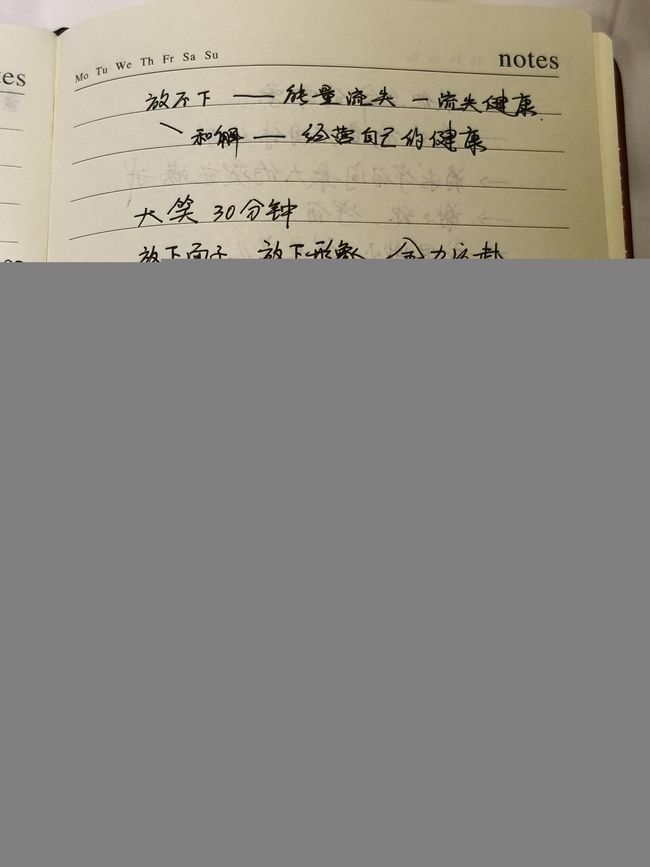 Mo Tu We Th Fr Sa Su
notes
放不下 —— 能量流失 — 流失健康.
和解 —— 经营自己的健康
大笑 30分钟
放下面子 放下形象 全力以赴